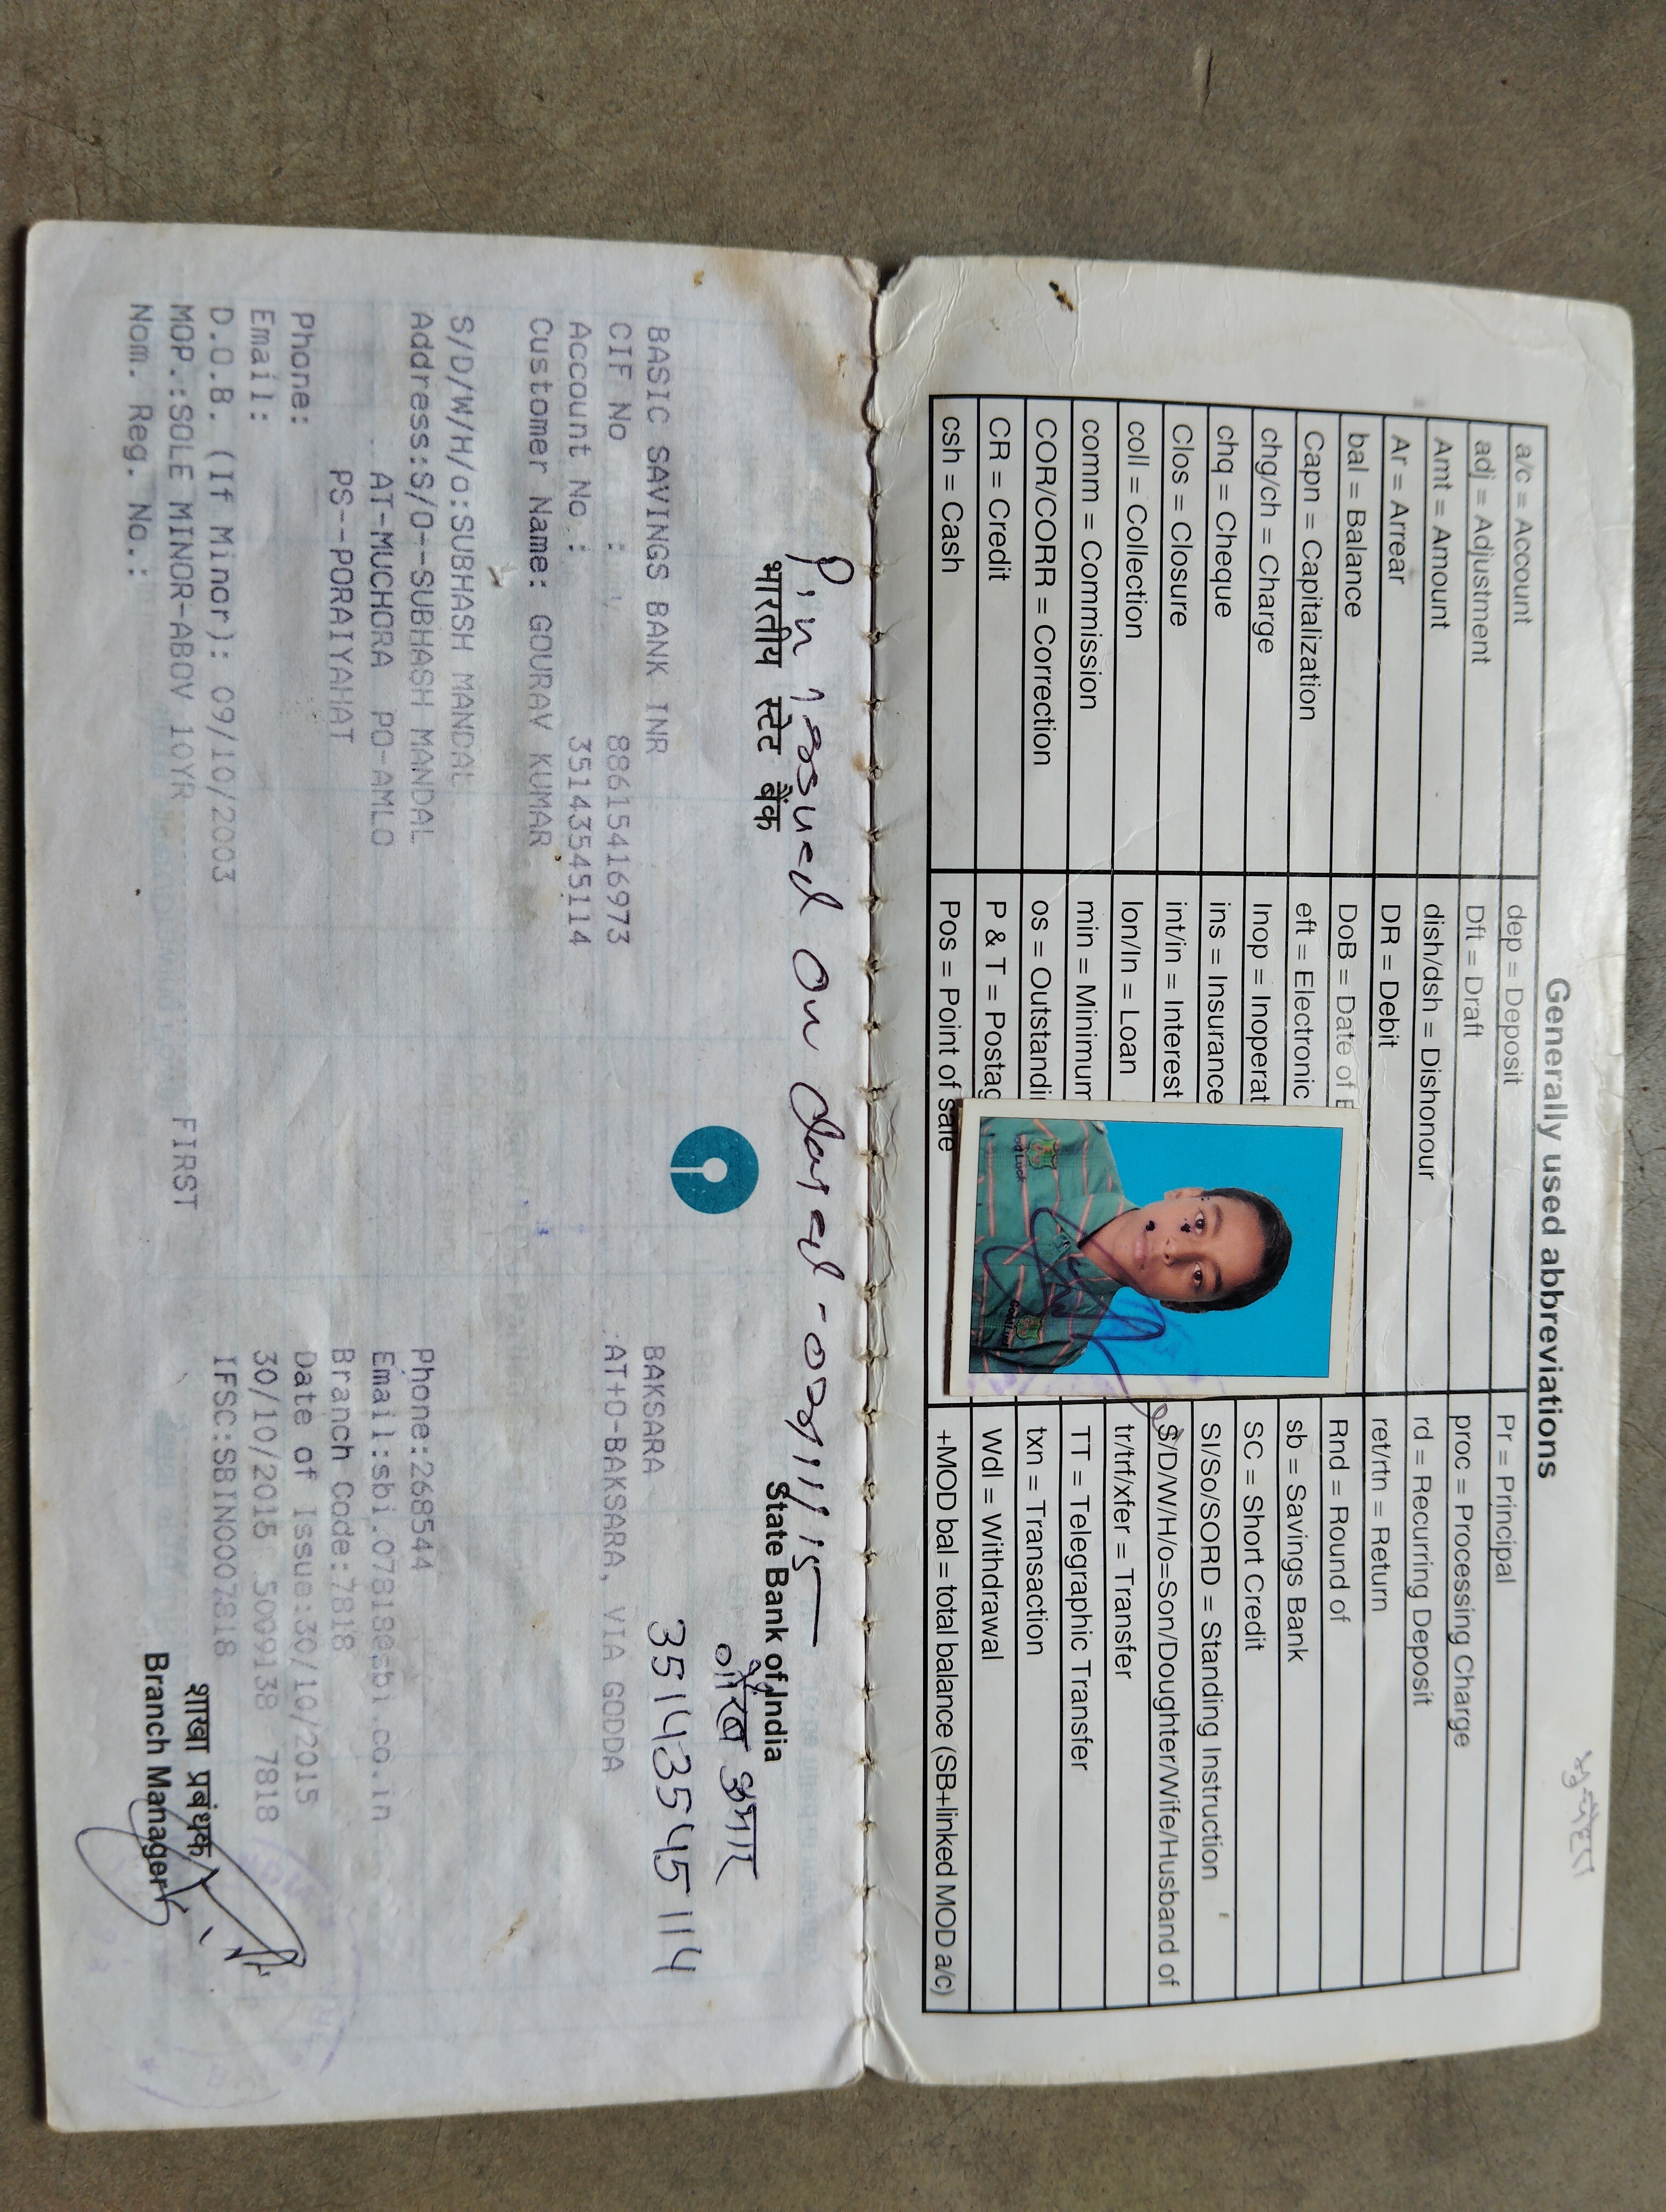 मुचोरा
Generally used abbreviations
a/c = Account dep = Deposit Pr = Principal
adj = Adjustment Dft = Draft proc = Processing Charge
Amt = Amount dish/dsh = Dishonour rd = Recurring Deposit
Ar = Arrear DR = Debit ret/rtn = Return
bal = Balance DoB = Date of Rnd = Round of
Capn = Capitalization eft = Electronic sb = Savings Bank
chg/ch = Charge Inop = Inoperat SC = Short Credit
chq = Cheque ins = Insurance SI/So/SORD = Standing Instruction
Clos = Closure int/in = Interest S/D/W/H/o=Son/Doughter/Wife/Husband of
coll = Collection lon/ln = Loan tr/trf/xfer = Transfer
comm = Commission min = Minimum TT = Telegraphic Transfer
COR/CORR = Correction os = Outstandi txn = Transaction
CR = Credit P & T = Postag Wdl = Withdrawal
csh = Cash Pos = Point of Sale +MOD bal = total balance (SB+linked MOD a/c)
Pin issued on dated - 09/11/15
भारतीय स्टेट बैंक State Bank of India
गौरव कुमार
35143545114
BASIC SAVINGS BANK INR BAKSARA
CIF No : 88615416973 AT+O-BAKSARA, VIA GODDA
Account No.: 35143545114
Customer Name: GOURAV KUMAR
S/D/W/H/o:SUBHASH MANDAL
Address:S/O--SUBHASH MANDAL Phone:268544
AT-MUCHORA PO-AMLO Email:sbi.07818@sbi.co.in
PS--PORAIYAHAT Branch Code:7818
Phone: Date of Issue:30/10/2015
Email: 30/10/2015 5009138 7818
D.O.B. (If Minor): 09/10/2003 IFSC:SBIN0007818
MOP.:SOLE MINOR-ABOV 10YR FIRST
Nom. Reg. No.:
शाखा प्रबंधक
Branch Manager